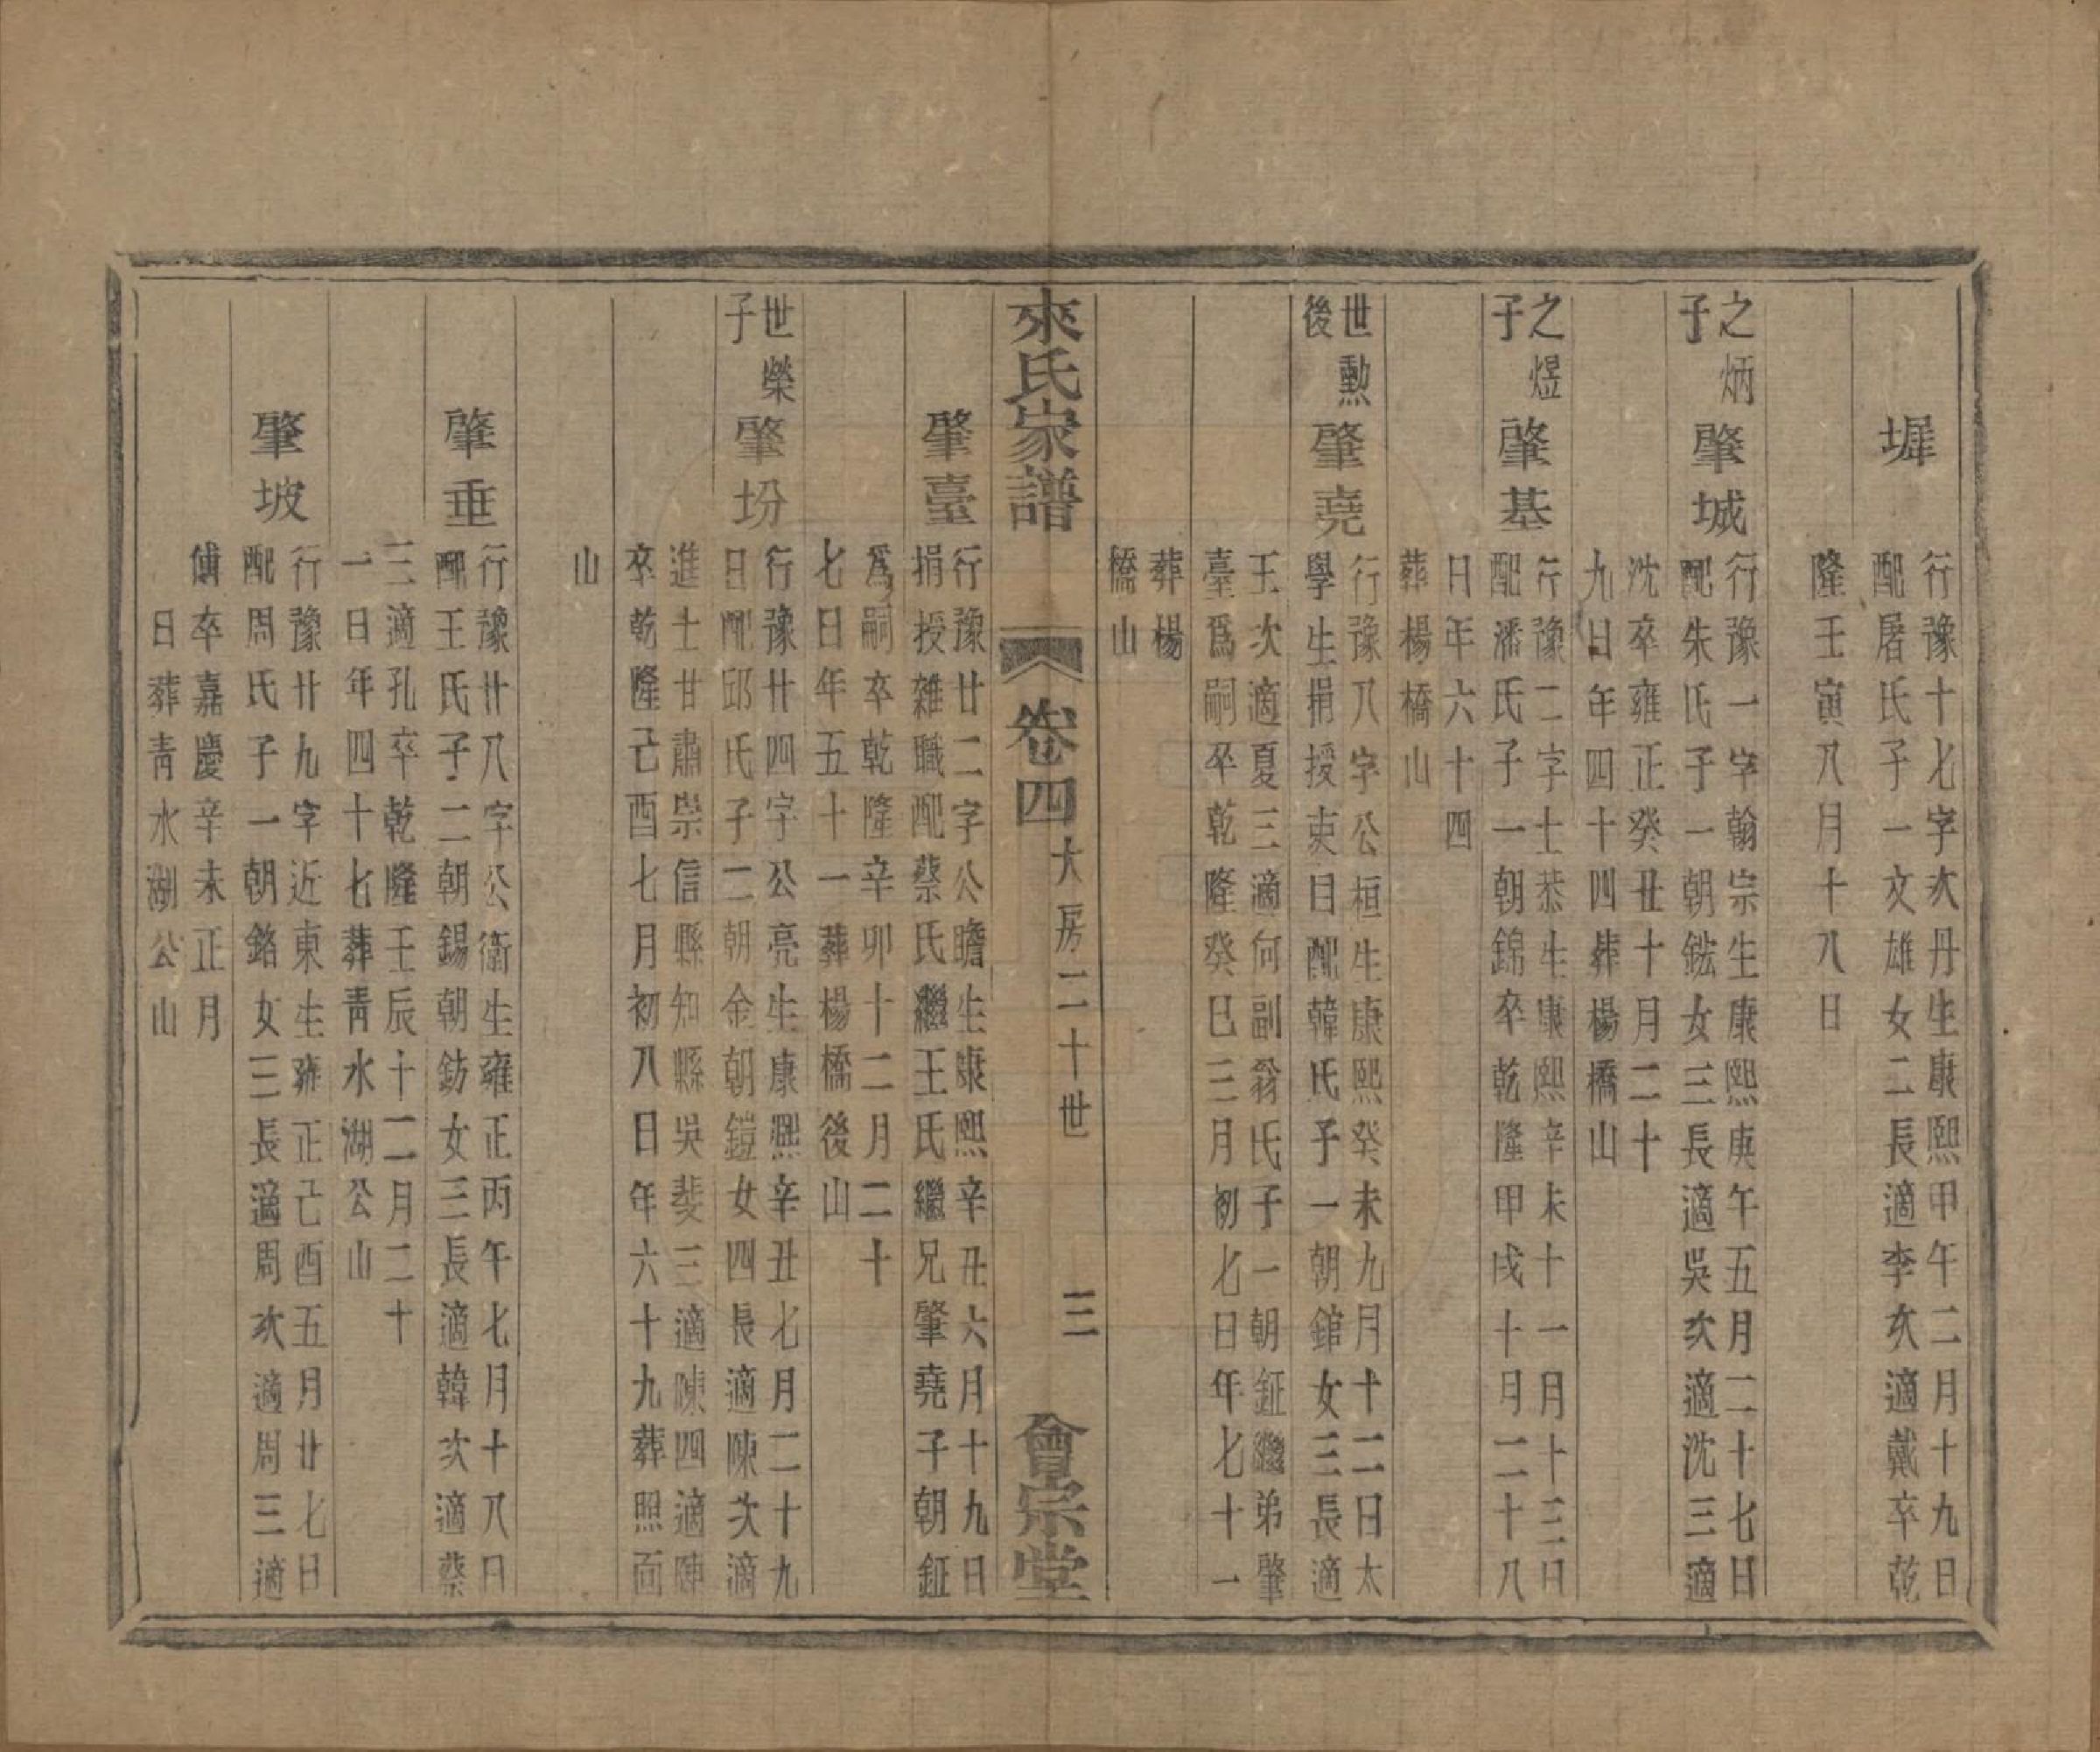 墀
行豫十七字次丹生康熙甲午二月十九日
配屠氏子一文雄女二長適李次適戴卒乾
隆壬寅八月十八日
之炳
子
肇城
行豫一字翰宗生康熙庚午五月二十七日
配朱氏子一朝鋐女三長適吳次適沈三適
沈卒雍正癸丑十月二十
九日年四十四葬楊橋山
之煜
子
肇基
行豫二字士恭生康熙辛未十一月十三日
配潘氏子一朝錦卒乾隆甲戌十月二十八
日年六十四
葬楊橋山
世勲
後
肇堯
行豫八字公桓生康熙癸未九月十二日太
學生捐授吏目配韓氏子一朝錧女三長適
王次適夏三適何副翁氏子一朝鉦繼弟肇
臺爲嗣卒乾隆癸巳三月初七日年七十一
葬楊
橋山
來氏家譜
卷四
大房二十世
三
會宗堂
肇臺
行豫廿二字公瞻生康熙辛丑六月十九日
捐授雜職配蔡氏繼王氏繼兄肇堯子朝鉦
爲嗣卒乾隆辛卯十二月二十
七日年五十一葬楊橋後山
世榮
子
肇坋
行豫廿四字公亮生康熙辛丑七月二十九
日配邱氏子二朝金朝鎧女四長適陳次適
進士甘肅崇信縣知縣吳斐三適陳四適陳
卒乾隆己酉七月初八日年六十九葬照面
山
肇垂
行豫廿八字公衛生雍正丙午七月十八日
配王氏子二朝錫朝鈁女三長適韓次適蔡
三適孔卒乾隆壬辰十二月二十
一日年四十七葬青水湖公山
肇坡
行豫廿九字近東生雍正己酉五月廿七日
配周氏子一朝鉻女三長適周次適周三適
傅卒嘉慶辛未正月
日葬青水湖公山